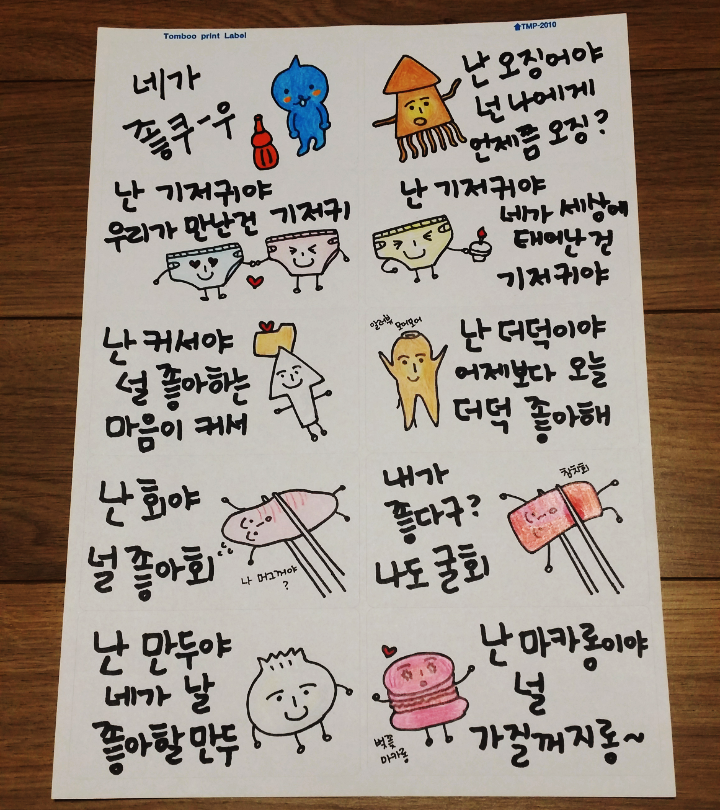 Tombow print Label
TMP-2010
네가
좋쿠-우
난 오징어야
넌 나에게
언제쯤 오징?
난 기저귀야
우리가 만난건 기저귀
난 기저귀야
네가 세상에
태어난 건
기저귀야
난 커서야
널 좋아하는
마음이 커서
모어모어
난 더덕이야
어제보다 오늘
더덕 좋아해
난 회야
널 좋아회
나 머그꺼야
?
내가
좋다구?
나도 굴회
참치회
난 만두야
네가 날
좋아할만두
난 마카롱이야
널
가질꺼지롱~
벚꽃
마카롱